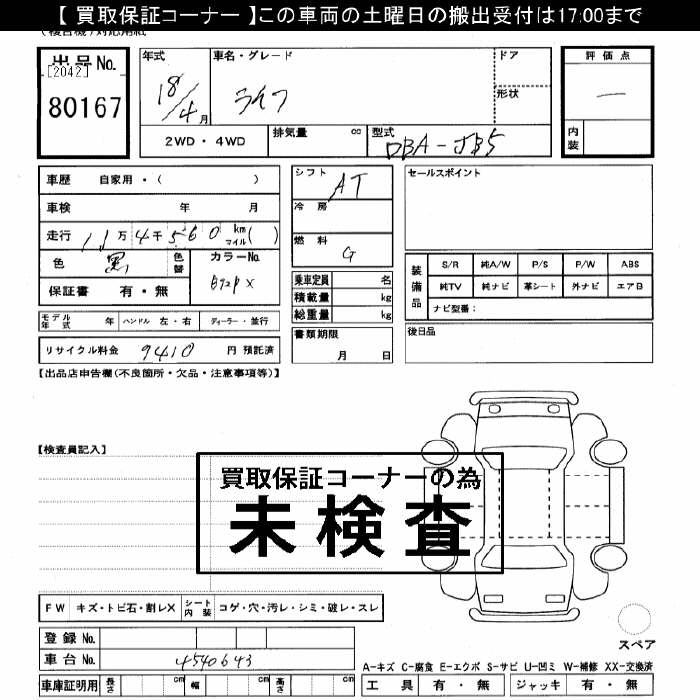 【 買取保証コーナー 】この車両の土曜日の搬出受付は17:00まで
出品No.
[2042]
80167
年式 車名・グレード ドア
18/4月 ライフ 形状
2WD・4WD 排気量 cc 型式 DBA-JB5
評価点
—
内装
車歴 自家用・( )
車検 年 月
走行 11万4千560 km マイル( )
色 黒 色替 カラーNo.
B92P X
保証書 有・無
モデル年式 年 ハンドル 左・右 ディーラー・並行
リサイクル料金 9410 円 預託済
シフト AT
冷房
燃料 G
乗車定員 名
積載量 kg
総重量 kg
書類期限
月 日
セールスポイント
装備品 S/R 純A/W P/S P/W ABS
純TV 純ナビ 革シート 外ナビ エアB
ナビ型番:
後日品
【出品店申告欄(不良箇所・欠品・注意事項等)】
【検査員記入】
買取保証コーナーの為
未検査
FW キズ・トビ石・割レX シート内装 コゲ・穴・汚レ・シミ・破レ・スレ
登録No.
車台No. 4540643
車庫証明用 長さ cm 幅 cm 高さ cm
スペア
A-キズ C-腐食 E-エクボ S-サビ U-凹ミ W-補修 XX-交換済
工具 有・無 ジャッキ 有・無